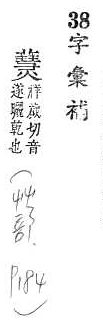 38字彙補
㸂祥歲切音
遂曬乾也
(艸部.
P184)